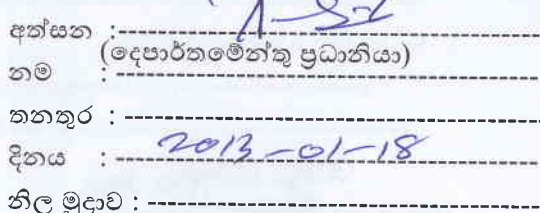 අත්සන :
(දෙපාර්තමේන්තු ප්‍රධානියා)
නම :
තනතුර :
දිනය : 2013-01-18
නිල මුද්‍රාව :